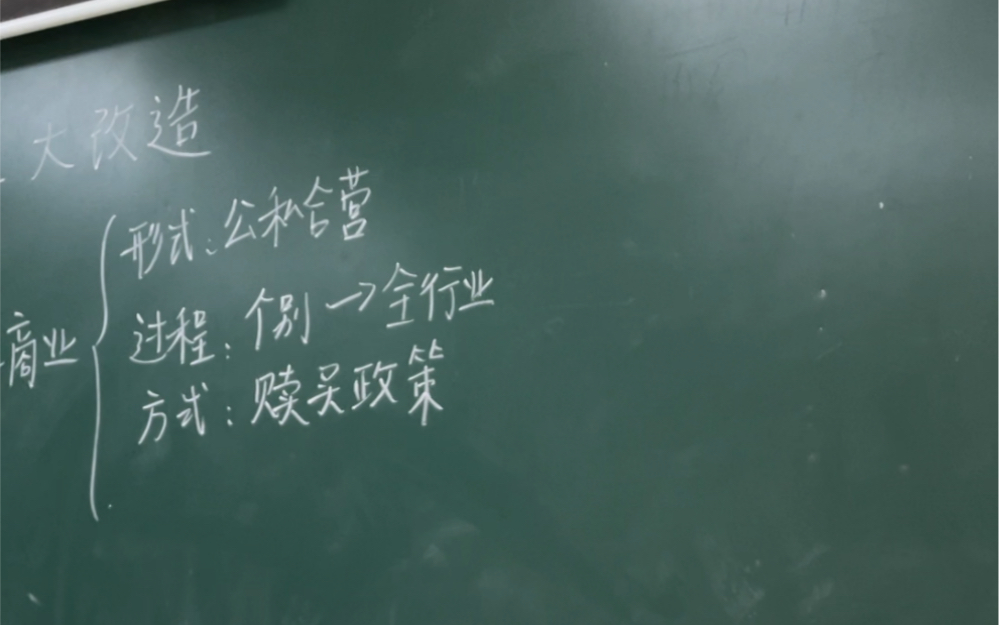 大改造
形式:公私合营
过程:个别→全行业
商业
方式:赎买政策